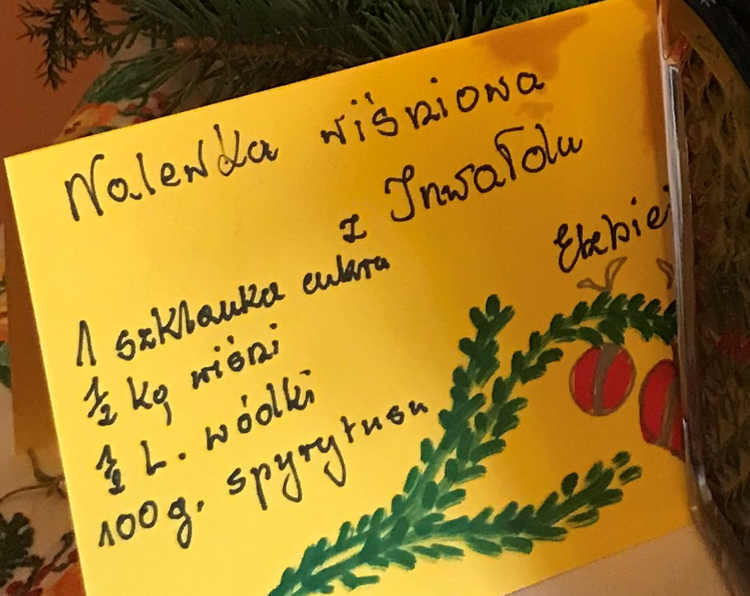 Nalewka wiśniowa
z Inwałdu
Elżbie
1 szklanka cukru
1/2 kg wiśni
1/2 L. wódki
100 g. spyrytusu